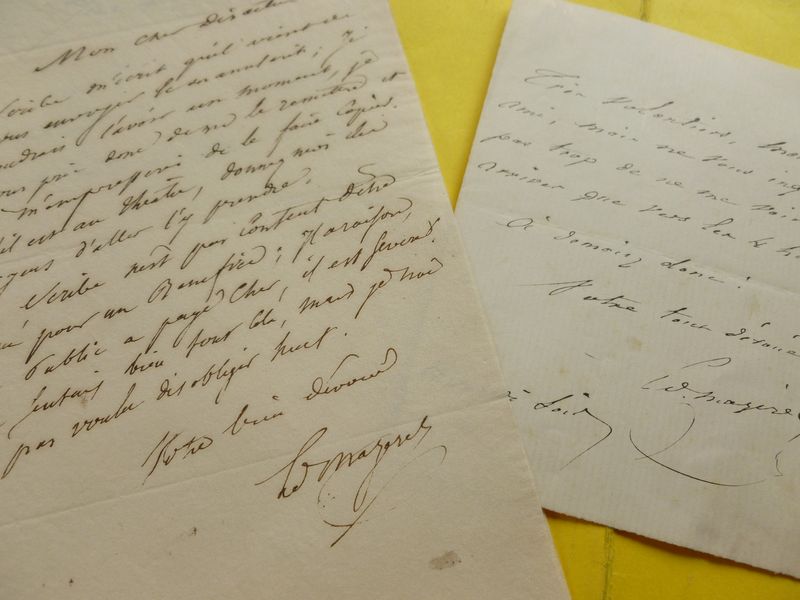 Mon cher Directeur
Scribe m'écrit qu'il vient de
vous envoyer le manuscrit; je
voudrais l'avoir un moment, je
vous prie donc de me le remettre et
m'empresserai de le faire copier.
s'il est au théâtre, donnez moi les
moyens d'aller l'y prendre.
Scribe n'est pas content d'être
pour un Bénéfice; il a raison,
Public a payé cher, il est sévère.
sentais bien tout cela, mais je n'ai
pas voulu désobliger huet.
Votre bien dévoué
Ed Mazères
Très volontiers, mon
ami, mais ne vous
pas trop de ne me voir
arriver que vers les 4 h
à demain donc!
Votre tout dévoué
Ed. Mazères
soir